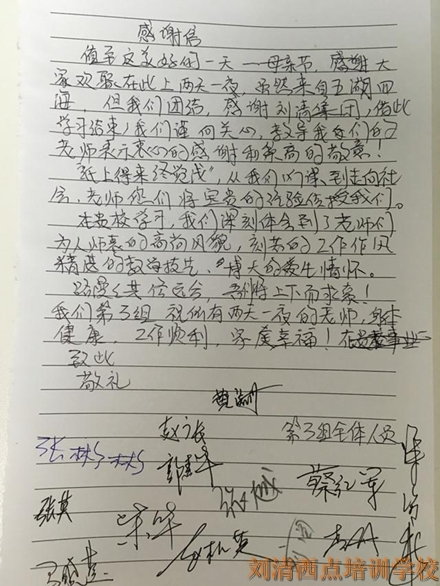 感谢信
值至这美好的一天——母亲节，感谢大
家欢聚在此上两天一夜，虽然来自五湖四
海，但我们团结，感谢刘清集团，借此
学习结束，我们谨向关心，教导我们的
老师表示衷心的感谢和崇高的敬意！
纸上得来终觉浅"，从我们以课到走向社
会，老师您们将宝贵的经验传授我们。
在贵校学习，我们深刻体会到了老师们
为人师表的高尚风貌，刻苦的工作作风
精湛的教学技，"博大的爱生情怀。
路漫之其位远合，吾将上下而求索！
我们第3组 祝所有两天一夜的老师，身体
健康，工作顺利，家庭幸福！在
致此
敬礼
第3组全体人员
张林林
蔡红军
张英
刘清西点培训学校